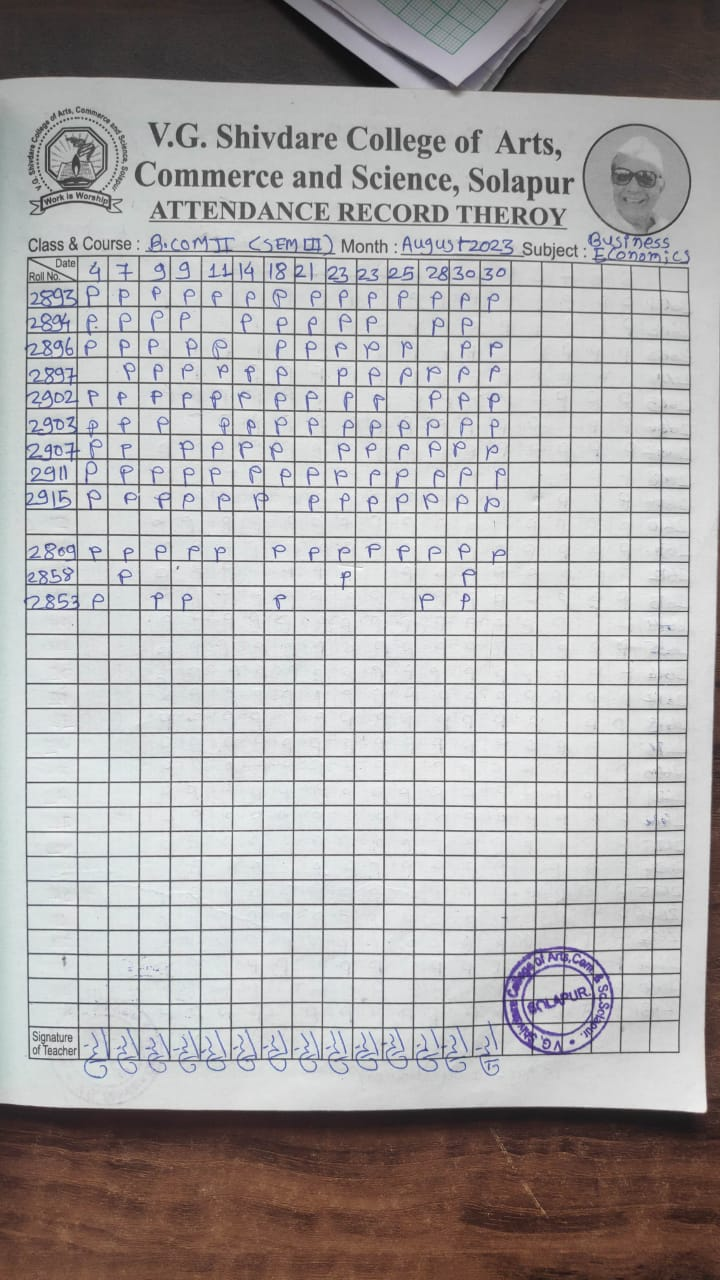 V.G. Shivdare College of Arts, Commerce and Science, Solapur
Work is Worship
V.G. Shivdare College of Arts,
Commerce and Science, Solapur
ATTENDANCE RECORD THEROY
Class & Course : B.COM II (SEM III) Month : August 2023 Subject : Business Economics
Date Roll No. 4 7 9 9 11 14 18 21 23 23 25 28 30 30
2893 P P P P P P P P P P P P P P
2894 P P P P P P P P P P P
2896 P P P P P P P P P P P P
2897 P P P P P P P P P P P P
2902 P P P P P P P P P P P P P
2903 P P P P P P P P P P P P P
2907 P P P P P P P P P P P P
2911 P P P P P P P P P P P P P P
2915 P P P P P P P P P P P P P
2809 P P P P P P P P P P P P P
2858 P P P
2853 P P P P P P
Signature of Teacher
V.G. Shivdare College of Arts, Com. & Sc. Solapur.
SOLAPUR